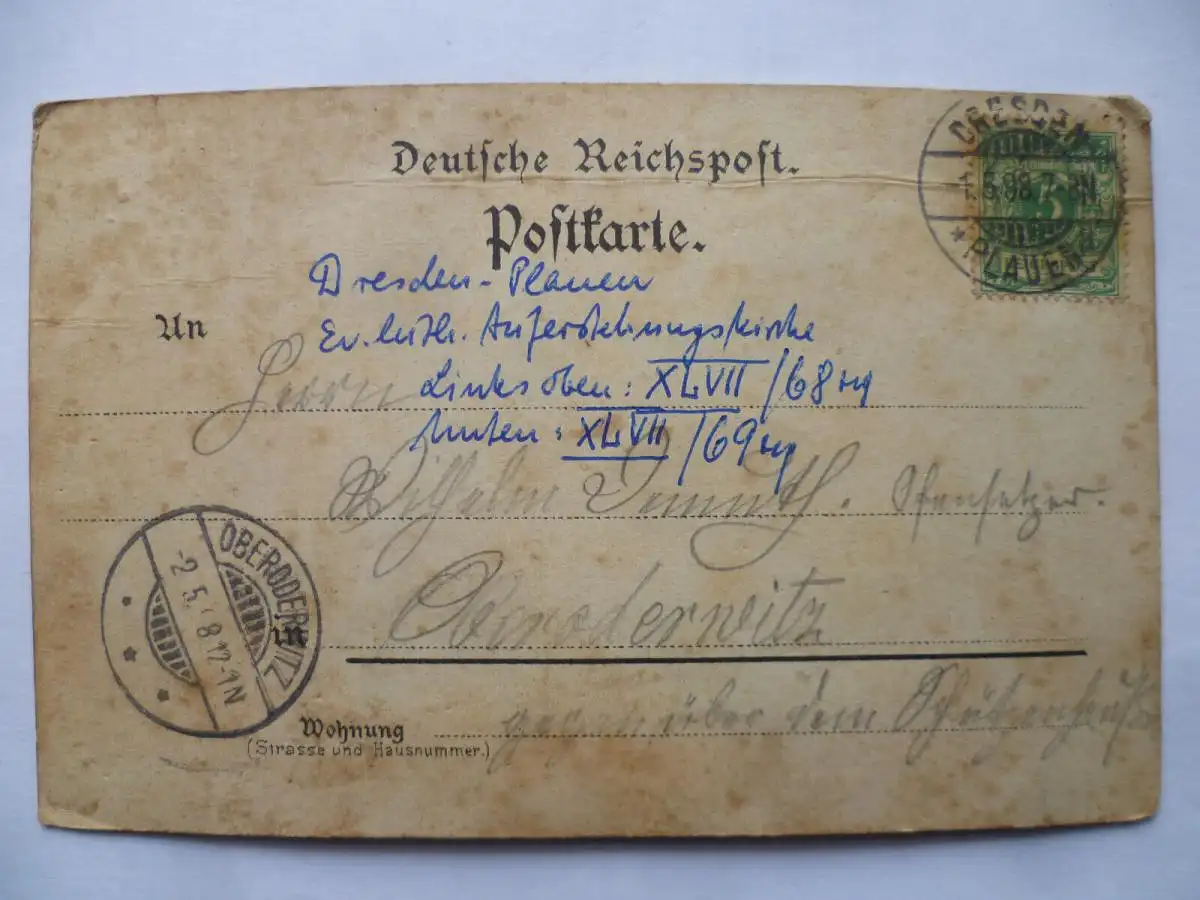 Deutsche Reichspost.
Postkarte.
DRESDEN
5 98 7-8N
* PLAUEN *
5
Dresden-Plauen
An
Ev. luth. Auferstehungskirche
Herrn
Links oben: XLVII/68
unten: XLVII/69
Wilhelm
Oberoderwitz
OBERODERWITZ
-2.5. 8 12-1N
in
Wohnung
(Strasse und Hausnummer.)
gegenüber dem Schützenhaus